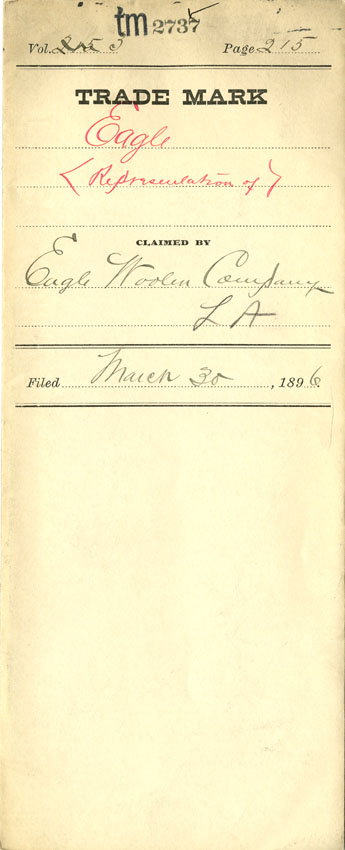 tm 2737
Vol. 253 Page 215
TRADE MARK
Eagle
(Representation of)
CLAIMED BY
Eagle Woolen Company
L A
Filed March 30, 1896